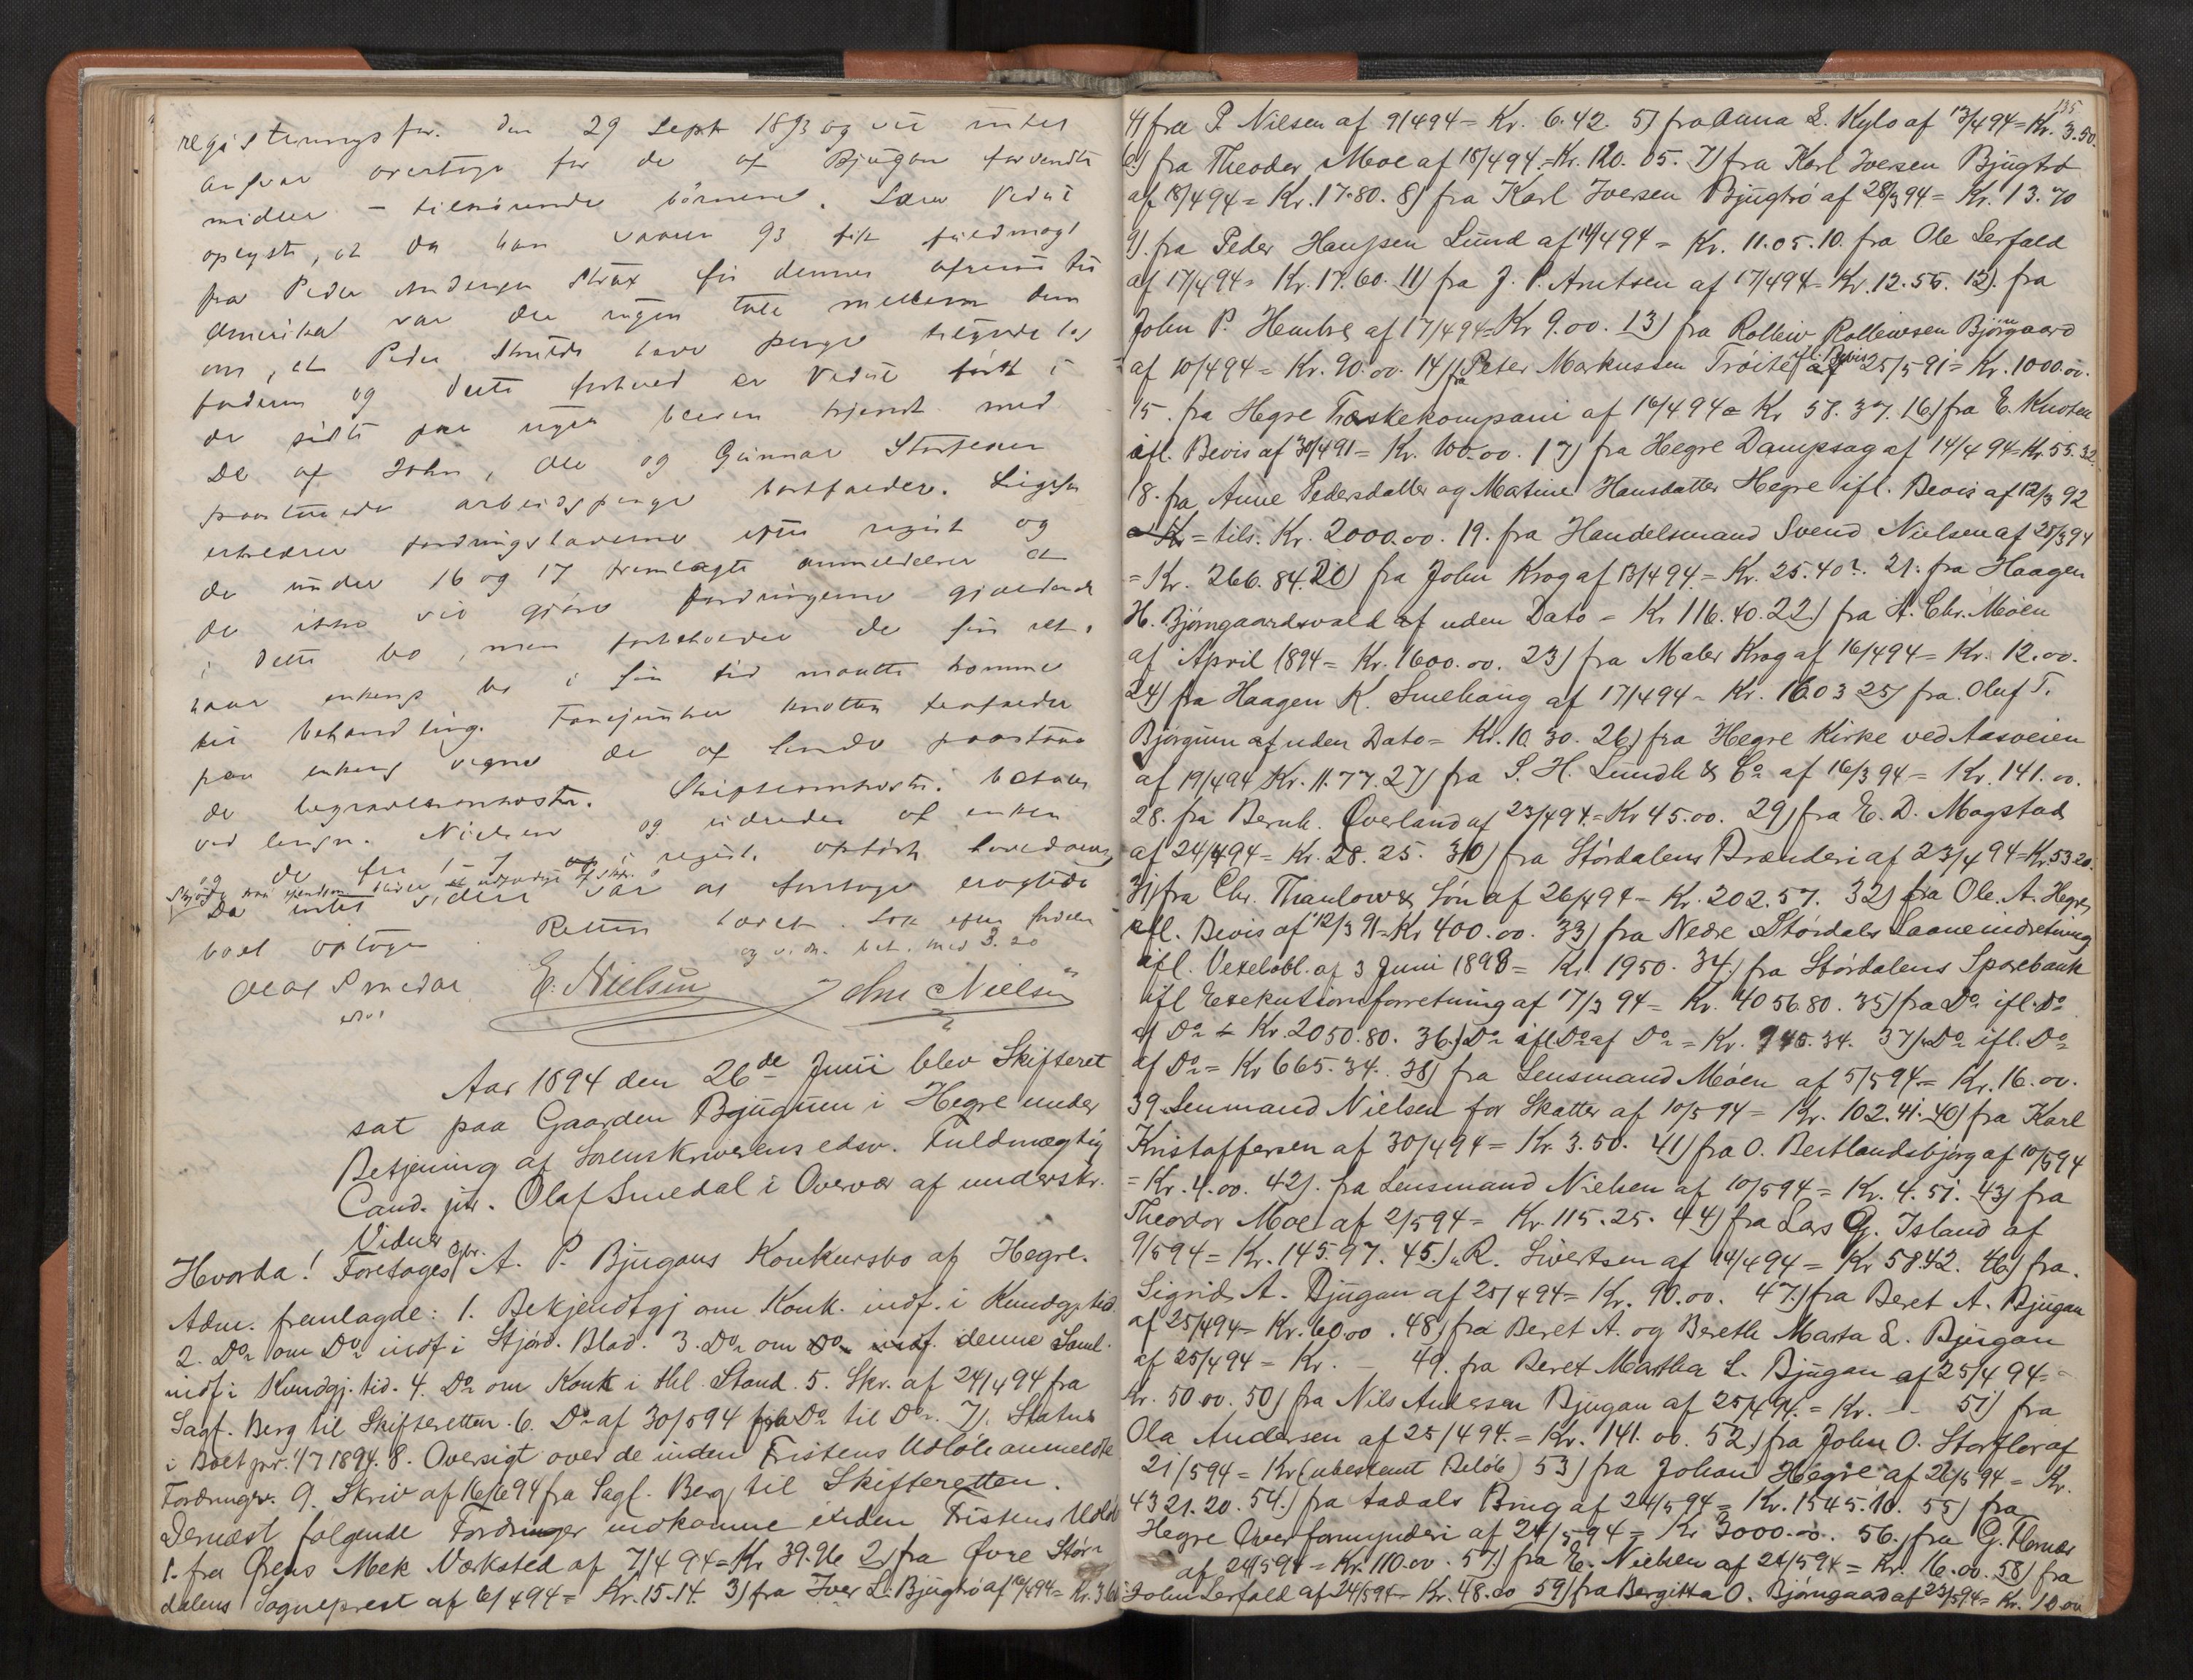 registrerings for. den 29 Sept 1893 og vil intet
ansvar overtage for de af Bjugan forvendte
midler - tilhörende börnene. Lars Vedul
oplyste, at da han vaaren 93 fik fuldmagt
fra Peder Andersen Strax för dennes afreise til
Amerika var der ingen tale mellem dem
om, at Peder skulde have penge tilgode hos
faderen og dette forhold er Vedul först i
de sidste par uger bleven kjendt med
De af John, Ole og Gunnar
paastaaede arbeidspenge bortfalder. Ligesaa
erklærer fordringshaverne efter regist og
de under 16 og 17 fremlagte anmeldelser at
de ikke vil gjöre fordringerne gjældende
i dette bo, men forbeholder de sin ret,
naar enkens bo i sin tid maatte komme
til behandling. Fanejunker Knotten frafalder
paa enkens vegne de af hende paastaaede
de begravelseskoster. Skifteomkostn. betales
ved lensm. Nielsen og udredes af enken
og de fra 1-7 i regist. opförte
Da intet videre var at foretage
boet optoges. Retten hævet. Sak efter
og v. m. bet. med 3.20
Olaf Smedal E. Nielsen John Nielsen
Aar 1894 den 26de Juni blev Skifteret
sat paa Gaarden Bjuguen i Hegre under
Betjening af Sorenskriverens edsv. Fuldmægtig
Cand. jur. Olaf Smedal i Overvær af underskr.
Vidner
Hvorda! Foretoges Gbr. A. P. Bjugans Konkursbo af Hegre.
Adm. fremlagde: 1. Bekjendtgj om Konk. indf. i Kundgj. tid
2. Do om Do indf i Stjørd. Blad. 3. Do om denne Saml.
indf i Kundgj. tid. 4. Do om Konk i thl. Stand. 5. Skr. af 24/4 94 fra
Sagf. Berg til Skifteretten. 6. Do af 30/5 94 fra Do til Do. 7). Status
i Boet pr. 1/7 1894. 8. Oversigt over de inden Fristens Udløb anmeldte
Fordringer. 9. Skriv af 16/6 94 fra Sagf. Berg til Skifteretten.
Dernæst følgende Fordringer indkomne inden Fristens Udløb
1. fra Ørens Mek Værksted af 7/4 94 = Kr 39.96 2) fra Øvre Stør-
dalens Sogneprest af 6/4 94 = Kr. 15.14. 3) fra Iver L. Bjugtrø af 16/4 94 = Kr. 3.60
135
4) fra P. Nilsen af 9/4 94 = Kr. 6.42. 5) fra Anna L. Kylo af 13/4 94 = Kr. 3.50.
6) fra Theodor Moe af 18/4 94 = Kr. 120.05. 7) fra Karl Iversen Bjugtrø
af 18/4 94 = Kr. 17.80. 8) fra Karl Iversen Bjugtrø af 28/3 94 = Kr. 13.70
9). fra Peder Hanssen Lund af 14/4 94 = Kr. 11.05. 10. fra Ole Lerfald
af 17/4 94 = Kr. 17.60. 11) fra J. P. Arntsen af 17/4 94 = Kr. 12.55. 12). fra
John P. Hembre af 17/4 94 = Kr 9.00. 13) fra Rollew Rollewsen Bjørngaard
af 10/4 94 = Kr. 90.00. 14) fra Peter Markussen Trøite ifl. Bevis af 25/5 91 = Kr. 1000.00.
15. fra Hegre Træskekompani af 16/4 94 = Kr 58.37. 16) fra E. Knoten
ifl. Bevis af 30/4 91 = Kr. 100.00. 17) fra Hegre Dampsag af 14/4 94 = Kr. 55.32.
18. fra Anne Pedersdatter og Matine Hansdatter Hegre ifl. Bevis af 12/3 92
= tils. Kr. 2000.00. 19. fra Handelsmand Svend Nielsen af 28/3 94
= Kr. 266.84. 20) fra John Krog af 13/4 94 = Kr. 25.40. 21. fra Haagen
H. Bjørngaardsvald af uden Dato = Kr 116.40. 22.) fra A. Chr. Møen
af April 1894 = Kr. 1600.00. 23) fra Maler Krog af 16/4 94 = Kr. 12.00.
24) fra Haagen K. Smelhaug af 17/4 94 = Kr. 16.03 25) fra Oluf T.
Bjørgum af uden Dato = Kr. 10.30. 26) fra Hegre Kirke ved Aasveien
af 19/4 94 Kr. 11.77. 27) fra S. H. Lundh & Co af 16/3 94 = Kr. 141.00.
28. fra Bernh. Øverland af 23/4 94 = Kr 45.00. 29) fra E. D. Magstad
af 24/4 94 = Kr. 28.25. 30) fra Stördalens Brænderi af 23/4 94 = Kr. 53 20.
31) fra Chr. Thaulow & Søn af 26/4 94 = Kr. 202.57. 32) fra Ole A. Hegre
ifl. Bevis af 12/3 91 = Kr 400.00. 33) fra Nedre Stördalens Laaneindretning
ifl. Vexelobl. af 3 Juni 1893 = Kr. 1950. 34.) fra Stördalens Sparebank
ifl Exekutionsforretning af 17/3 94 = Kr. 4056.80. 35) fra Do ifl. Do
af Do = Kr. 2050.80. 36.) Do ifl Do af Do = Kr. 945.34. 37) Do ifl. Do
af Do = Kr 665.34. 38) fra Lensmand Möen af 5/5 94 = Kr. 16.00.
39. Lensmand Nielsen for Skatter af 10/5 94 = Kr. 102.41. 40) fra Karl
Kristoffersen af 30/4 94 = Kr. 3.50. 41) fra O. Bertlandsbjørg af 10/5 94
= Kr. 4.00. 42). fra Lensmand Nielsen af 10/5 94 = Kr. 4.51. 43) fra
Theodor Moe af 2/5 94 = Kr. 115.25. 44) fra Lars G. Island af
9/5 94 = Kr. 145.97. 45.) R. Sivertsen af 14/4 94 = Kr 58.42. 46) fra
Sigrid A. Bjugan af 25/4 94 = Kr. 90.00. 47.) fra Beret A. Bjugan
af 25/4 94 = Kr. 60.00. 48) fra Beret A. og Bereth Marta L. Bjugan
af 25/4 94 = Kr. — 49. fra Beret Martha L. Bjugan af 25/4 94 =
Kr. 50.00. 50) fra Nils Andersen Bjugan af 25/4 94. = Kr. — 51) fra
Ola Andersen af 25/4 94. = Kr. 141.00. 52.) fra John O. Storflor af
21/5 94 = Kr (ubestemt Beløb) 53) fra Johan Hegre af 26/5 94 = Kr.
4321.20. 54.) fra Aadals Brug af 24/5 94 = Kr. 1545.10. 55) fra
Hegre Overformynderi af 24/5 94 = Kr 3000.00. 56.) fra G. Flornæs
af 24/5 94 = Kr. 110.00. 57.) fra E. Nielsen af 24/5 94 = Kr. 16.00. 58) fra
John Lerfald af 24/5 94 = Kr. 48.00 59) fra Bergitta O. Bjørngaard af 23/5 94 = Kr. 10.00